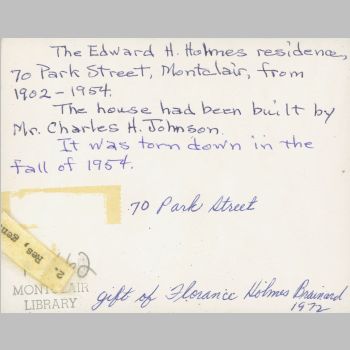 The Edward H. Holmes residence,
70 Park Street, Montclair, from
1902-1954.
The house had been built by
Mr. Charles H. Johnson.
It was torn down in the
fall of 1954.
70 Park Street
2. Res, gen
MONTCLAIR
LIBRARY
gift of Florance Holmes Brainard
1972